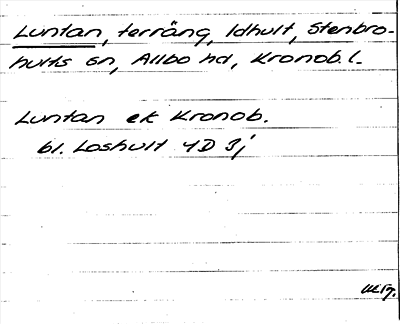 Luntan, terräng, Idhult, Stenbro-
hults sn, Allbo hd, Kronob. l.
Luntan ek Kronob.
bl. Loshult 4D 3j